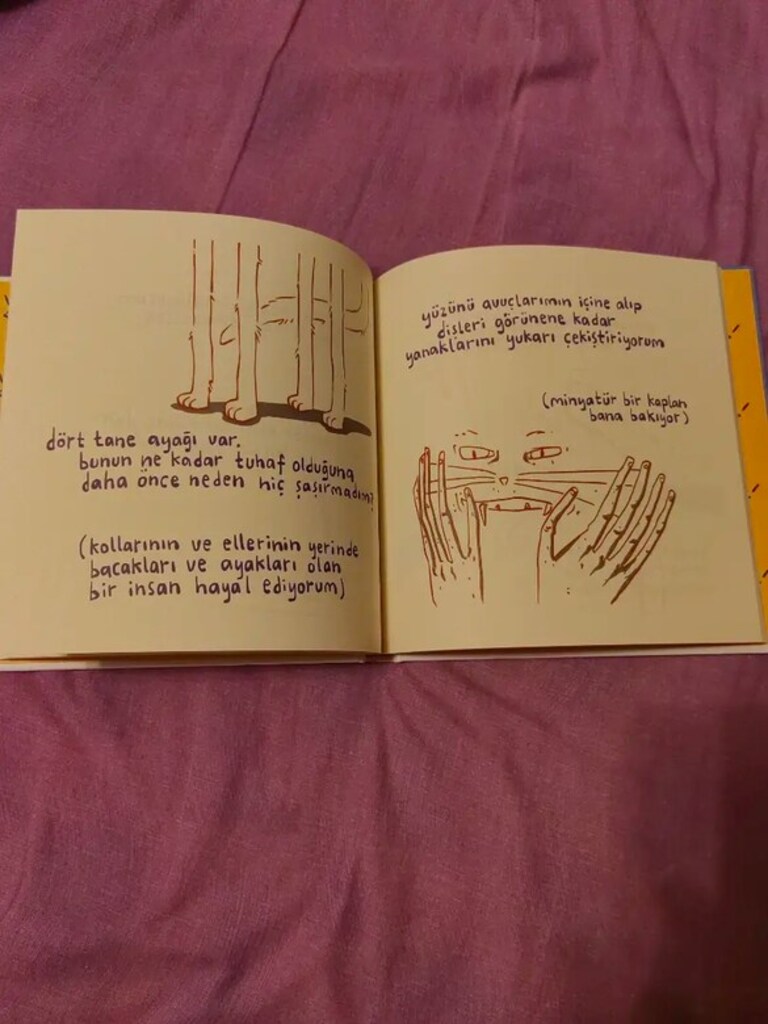 dört tane ayağı var.
bunun ne kadar tuhaf olduğuna
daha önce neden hiç şaşırmadım?
(kollarının ve ellerinin yerinde
bacakları ve ayakları olan
bir insan hayal ediyorum)
yüzünü avuçlarımın içine alıp
dişleri görünene kadar
yanaklarını yukarı çekiştiriyorum
(minyatür bir kaplan
bana bakıyor)